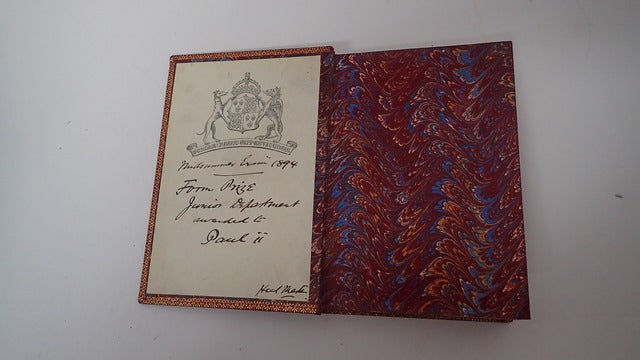 Midsummer Exam 1894
Form Prize
Junior Department
awarded to
Paul ii
Head Master.